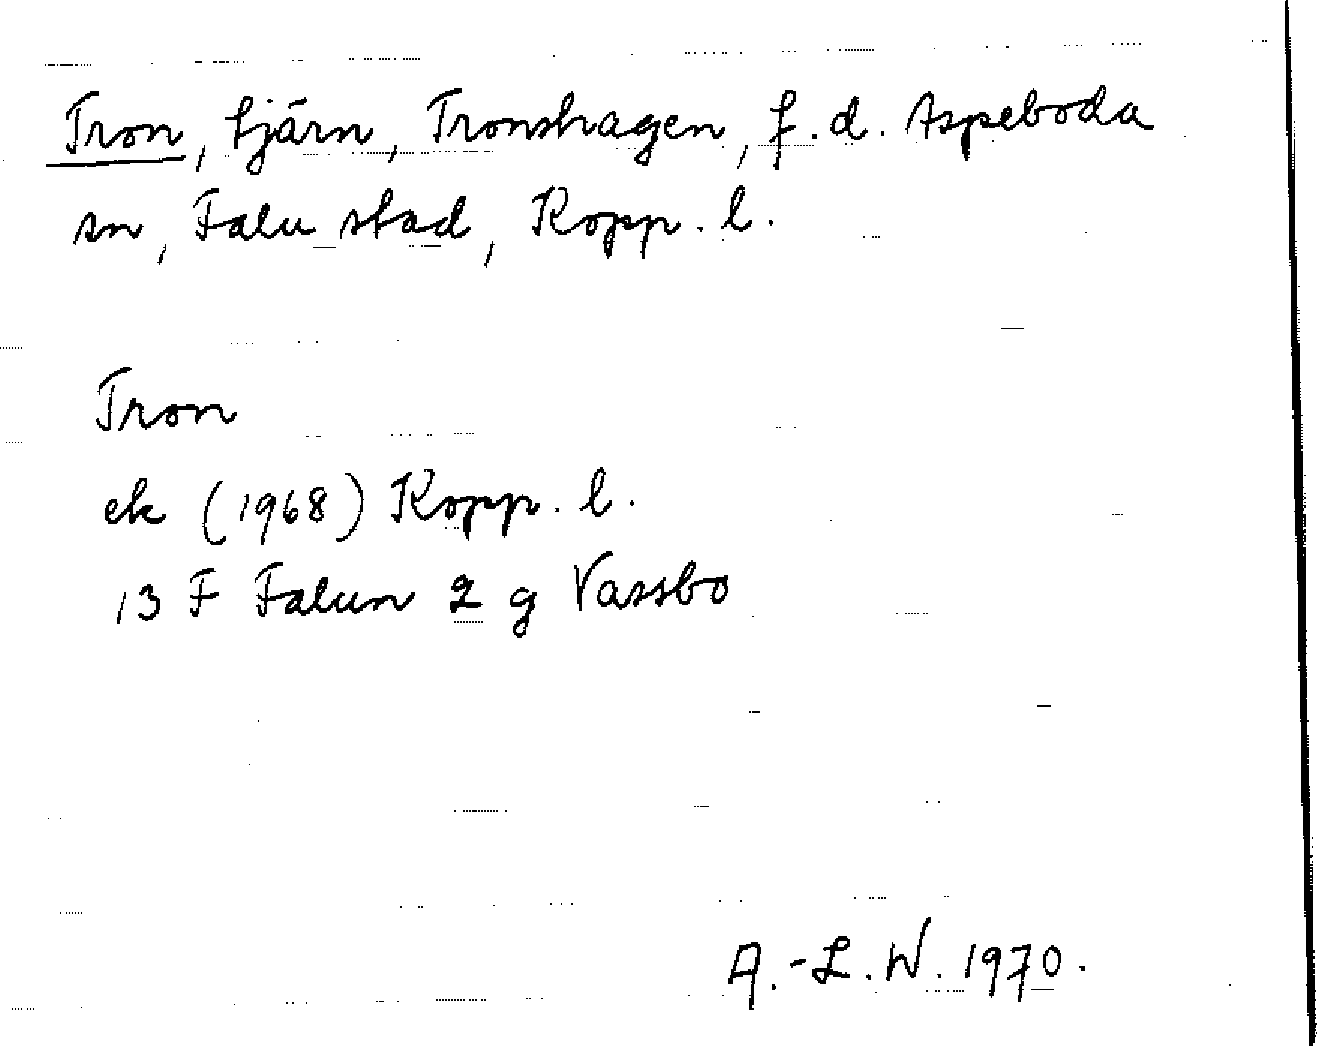 Tron, tjärn, Tronshagen, f.d. Aspeboda
sn, Falu stad, Kopp. l.
Tron
ek (1968) Kopp. l.
13 F Falun 2 g Vassbo
A.-L. W. 1970.